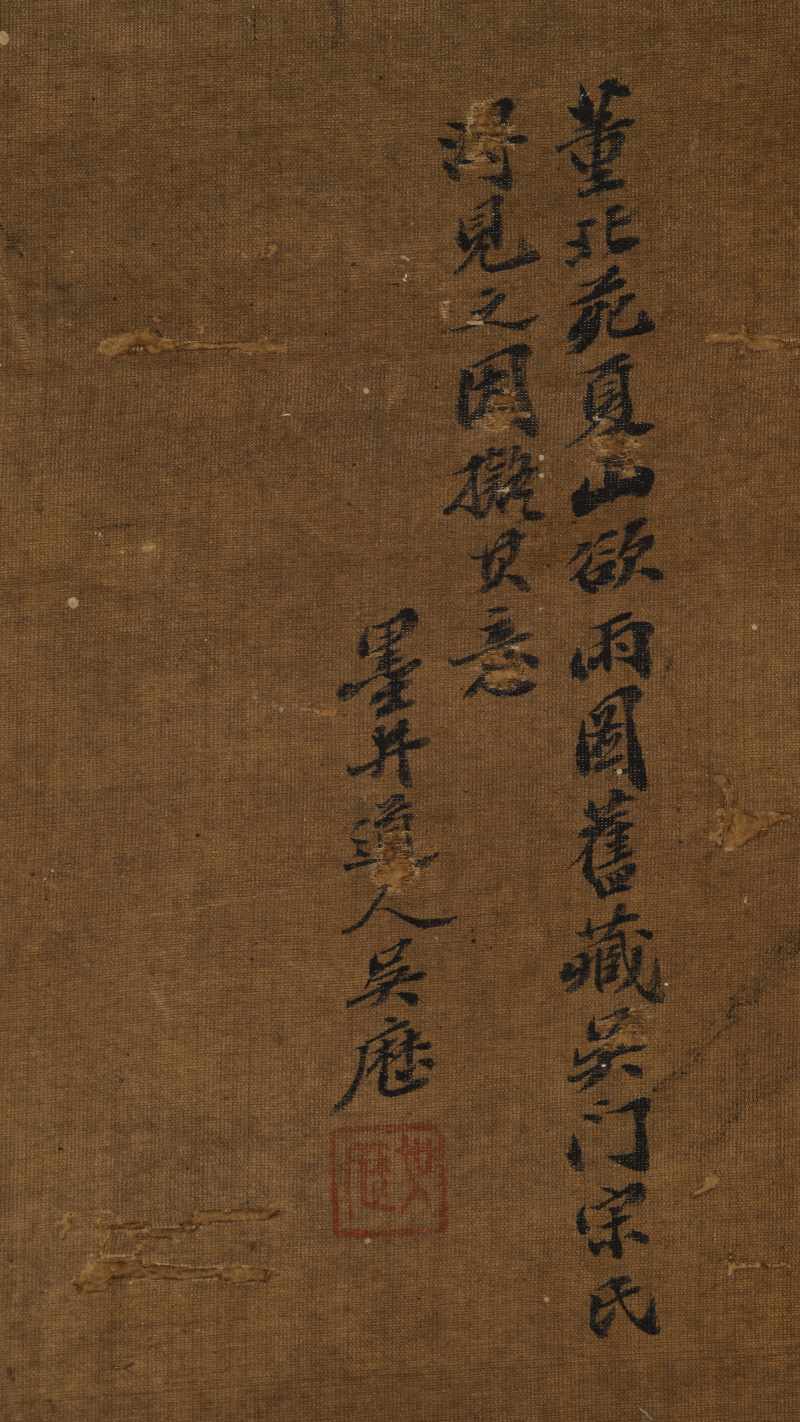 董北苑夏山欲雨圖舊藏吳门宋氏
得見之因擬其意
墨井道人吴歷
吴歷